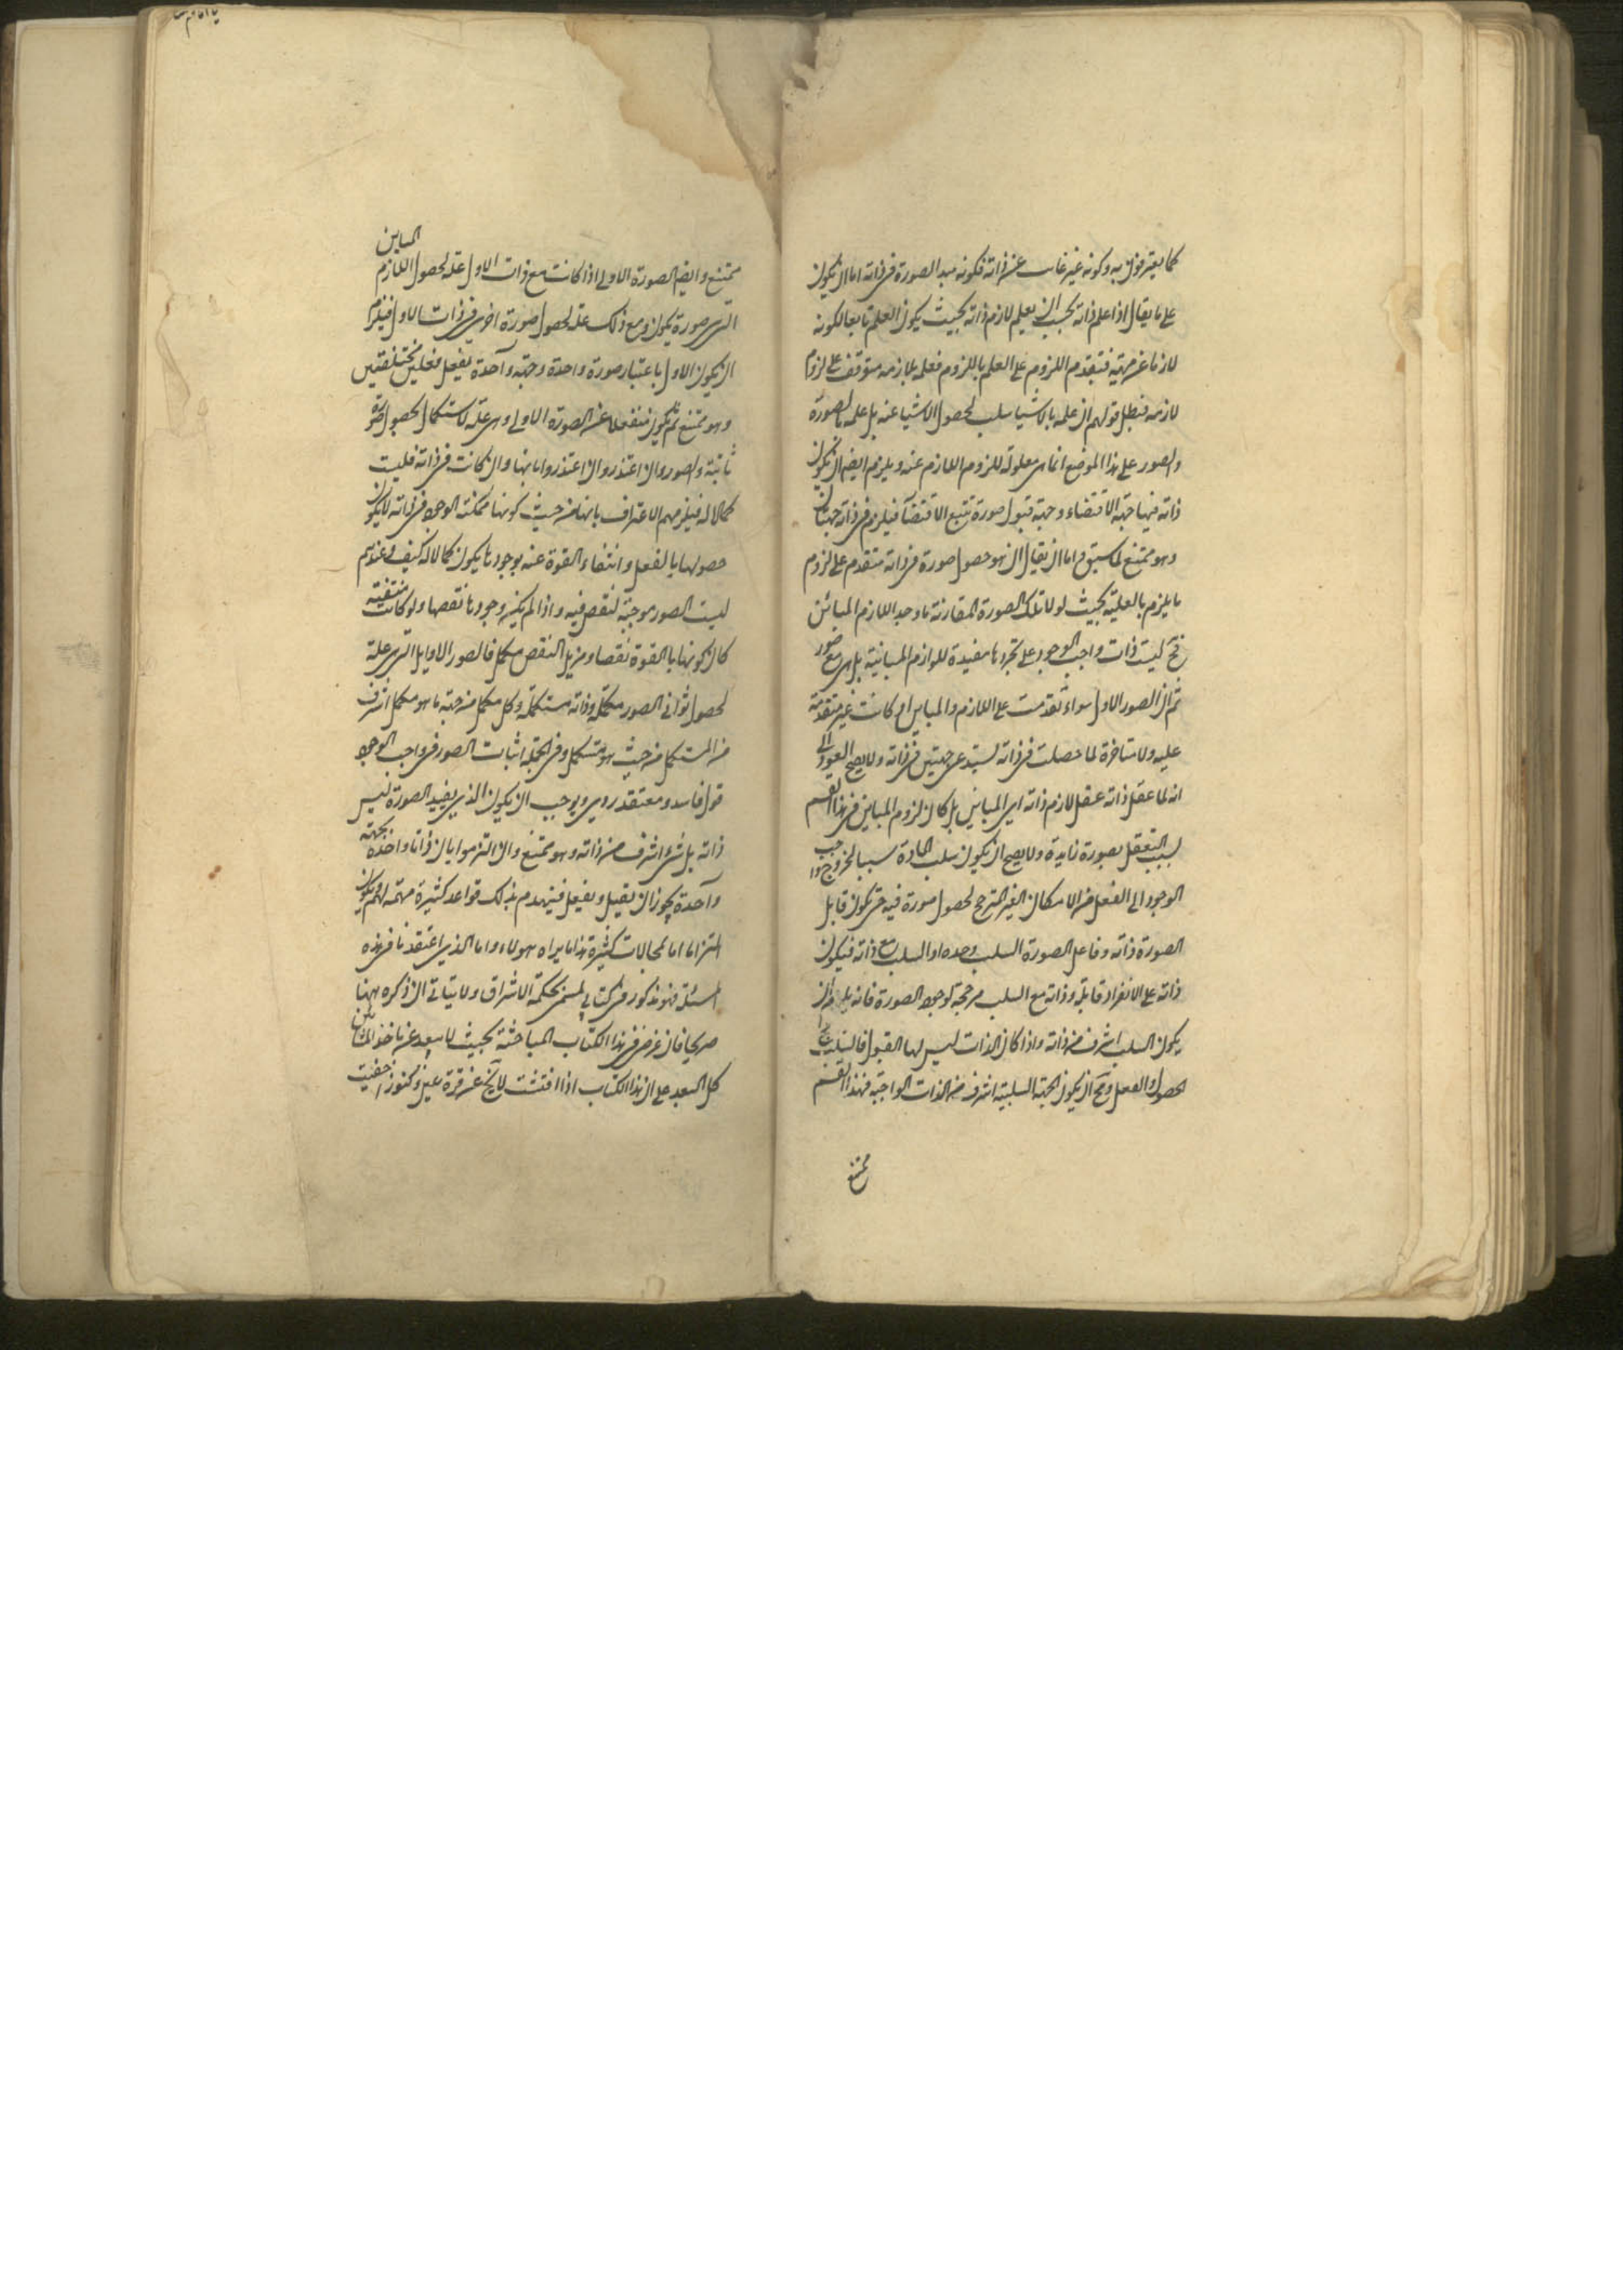 كما يعترفون به وكونه غير غائب عن ذاته فكونه مبدا لصورة في ذاته اما ان يكون
على ما يقال اذا علم ذاته يجب ان يعلم لازم ذاته بحيث يكون العلم تابعا لكونه
لازما عن مهيته فتقدم اللزوم على العلم باللزوم فعلمه بلازمه متوقف على لزوم
لازمه فبطل قولهم ان علمه بالاشياء سبب لحصول الاشياء عنه بل علمه بالصورة
والصور على هذا الموضع انما هي معلولة للزوم اللازم عنه ويلزم ايضا ان يكون
ذاته فيها جهة الاقتضاء وجهة قبول صورة تتبع الاقتضاء فيلزم في ذاته جهتان
وهو ممتنع لما سبق واما ان يقال ان هو حصول صورة في ذاته متقدم على لزوم
ما يلزم بالعلية بحيث لولا تلك الصورة المقارنة ما وجد اللازم المباين
فح ليست ذات واجب الوجود على تجردها مفيدة للوازم المباينة بل هي مع صور
ثم ان الصور الاول سواء تقدمت على اللازم والمباين او كانت غير متقدمة
عليه ولا متاخرة لما حصلت في ذاته تستدعي جهتين في ذاته ولا يصح العود الى
انه لما عقل ذاته عقل لازم ذاته اي المباين بل كان لزوم المباين في هذا القسم
بسبب التعقل بصورة زايدة ولا يصح ان يكون سلب المادة سببا لخروج واجب
الوجود الى الفعل من الامكان الغير المترجح لحصول صورة فيه حتى يكون قابل
الصورة ذاته وفاعل الصورة السلب وحده او السلب مع ذاته فيكون
ذاته على الانفراد قابلة وذاته مع السلب مرجحة لوجود الصورة فانه يلزم ان
يكون السلب اشرف من ذاته واذا كان الذات ليس لها القبول فالسلب
الحصول والفعل ومح ان يكون الجهة السلبية اشرف من الذات الواجبة فهذا القسم
ممتنع
ممتنع وايضا الصورة الاولى اذا كانت مع ذات الاول علة لحصول اللازم المباين
التي صورة يكون ومع ذلك علة لحصول صورة اخرى في ذات الاول فيلزم
ان يكون الاول باعتبار صورة واحدة وجهة واحدة يفعل فعلين مختلفين
وهو ممتنع ثم يكون منفعلا عن الصورة الاولى وهي علة لاستكمال لحصول صورة
ثانية والصور وان اعتذروا بانها وان كانت في ذاته فليست
كمالا له فيلزمهم الاعتراف بانها من حيث كونها ممكنة الوجود في ذاته لا يكون
حصولها بالفعل وانتفاء القوة عنه بوجودها يكون كمالا له كيف وعندهم
ليست الصور موجبة لنقص فيه واذا لم يكن وجودها نقصا ولو كانت منتفية
كان كونها بالقوة نقصا ومزيل النقص مكمل فالصور الاوايل التي علة
لحصول ثواني الصور مكملة وذاته مستكملة وكل مكمل من جهة ما هو مكمل اشرف
من المستكمل من حيث هو مستكمل وفي الجملة اثبات الصور في واجب الوجود
قول فاسد ومعتقد ردي ويوجب ان يكون الذي يفيد الصورة ليس
ذاته بل شيء اشرف من ذاته وهو ممتنع وان التزموا بان ذاتا واحدة بجهة
واحدة يجوز ان يقبل ويفعل فينهدم بذلك قواعد كثيرة مهمة لهم ويكون
التزاما لمحالات كثيرة هذا ما يراه هولاء واما الذي اعتقدنا في هذه
المسئلة فهو مذكور في كتابي المسمى بحكمة الاشراق ولا يتاتى ان نذكره ههنا
صريحا فان غرضي في هذا الكتاب المباحثة بحيث لا يبعد عن ماخذ المشائين
كل البعد على ان هذا الكتاب اذا فتشت لا يخ عن قرة عين وكنوز اخفيت